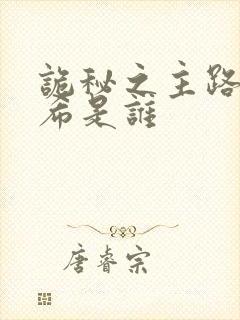 詭秘之主路
希是誰
唐睿宗